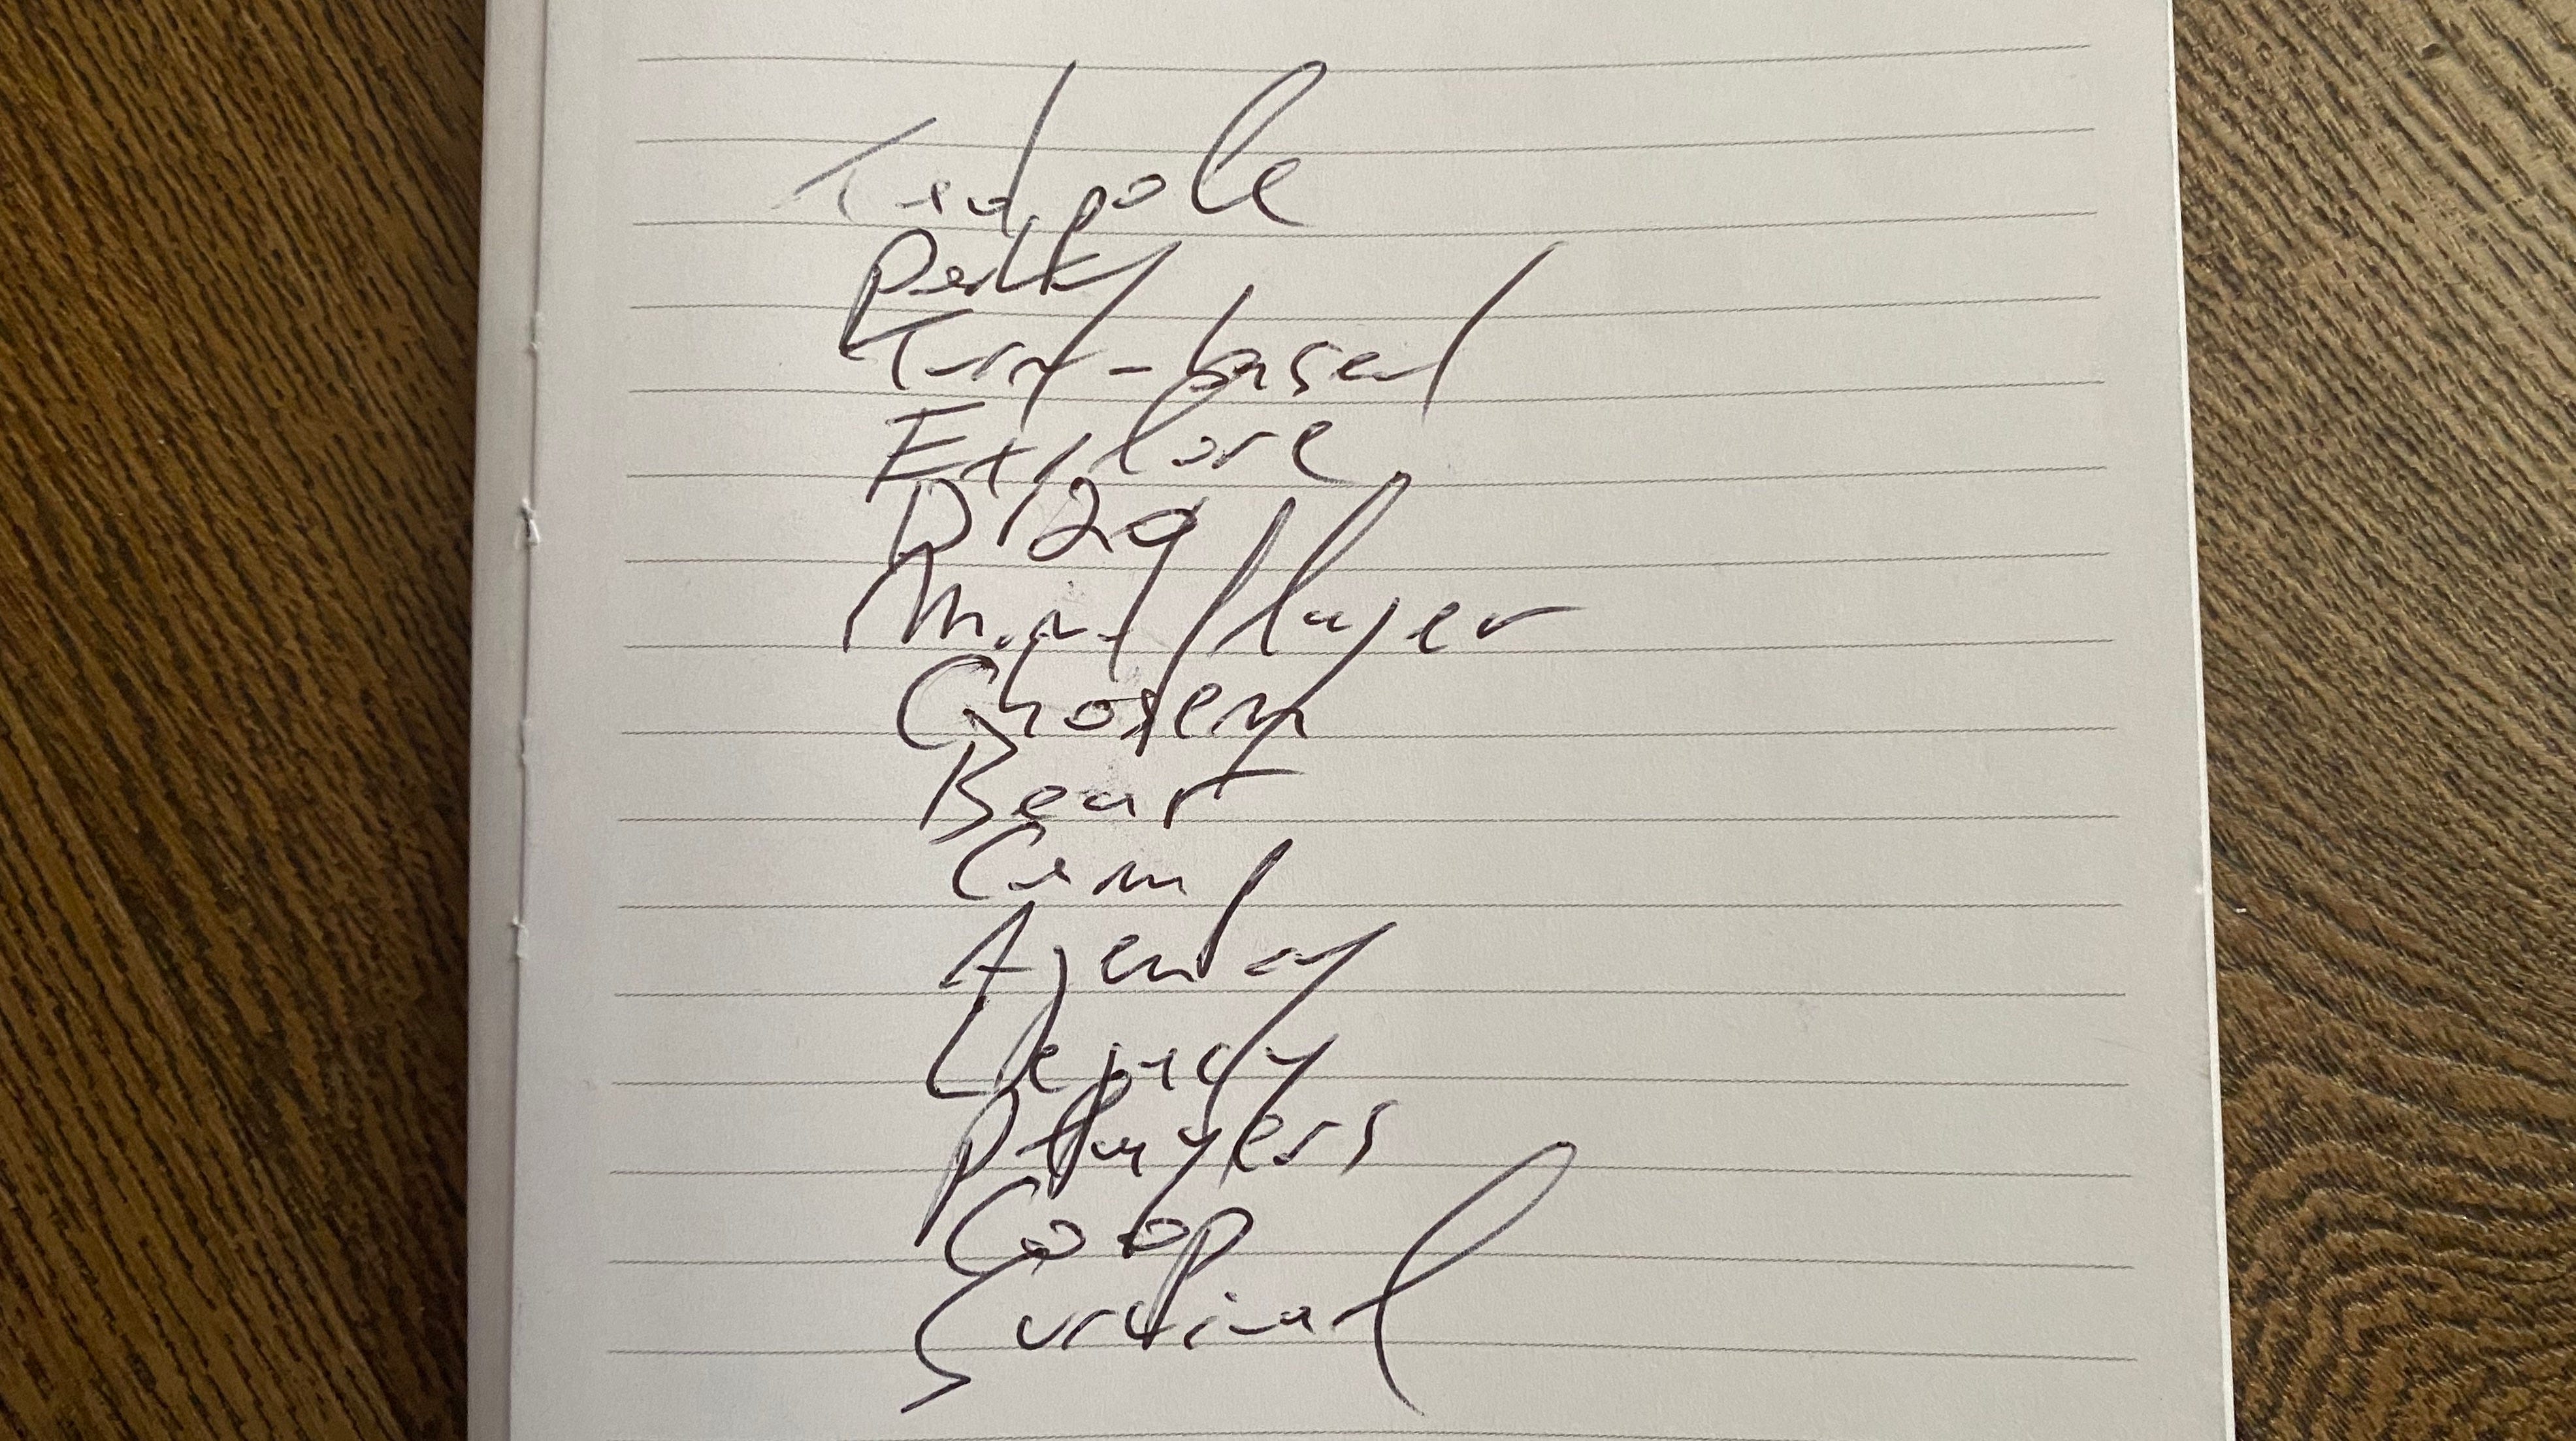 Tadpole
Party
Turn-based
Explore
D/20
Mind flayer
Chosen
Beast
Camp
Agency
Legacy
Players
Co op
Survival